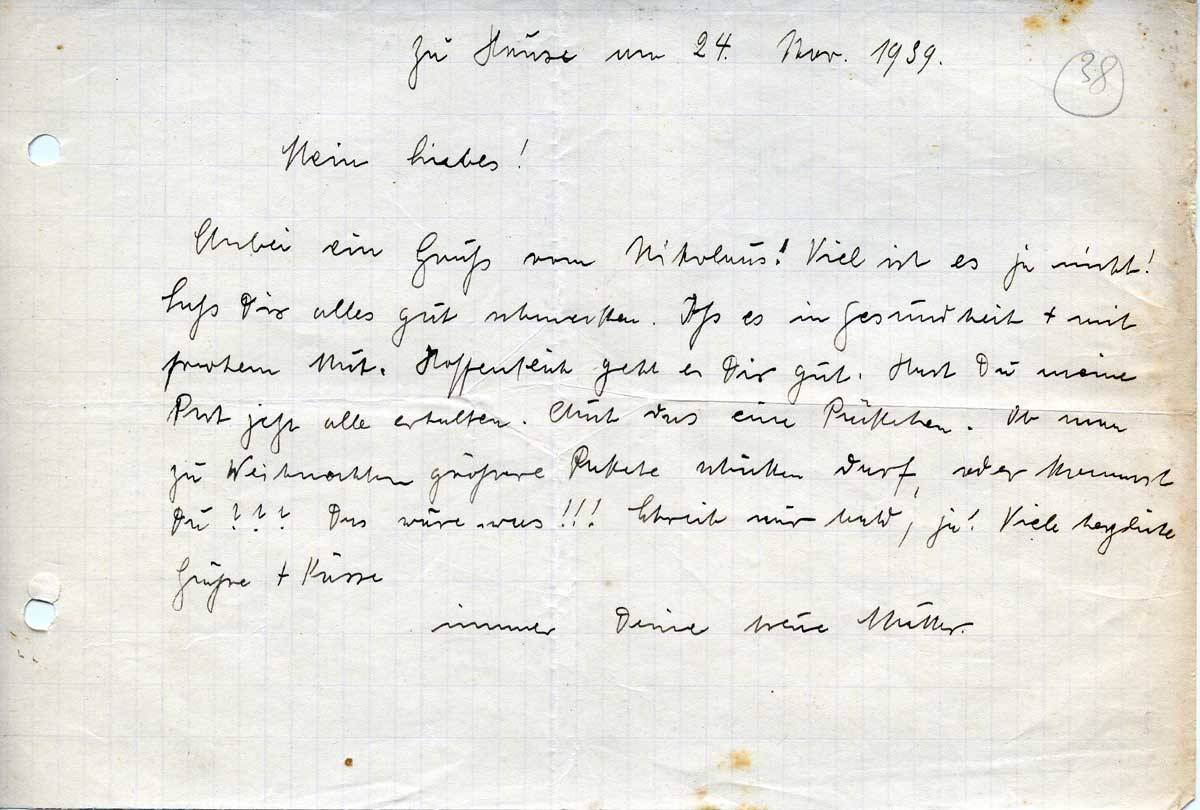 Zu Hause am 24. Nov. 1939.
38
Mein Liebes!
Anbei ein Gruß vom Nikolaus! Viel ist es ja nicht!
Laß Dir alles gut schmecken. Iß es in Gesundheit + mit
frohem Mut. Hoffentlich geht es Dir gut. Hast Du meine
Post jetzt alle erhalten. Auch das eine Päckchen. Ob man
zu Weihnachten größere Pakete schicken darf, oder kommst
Du ??? Das wäre was!!! Schreib nur bald, ja! Viele herzliche
Grüße + Küsse
immer Deine treue Mutter.